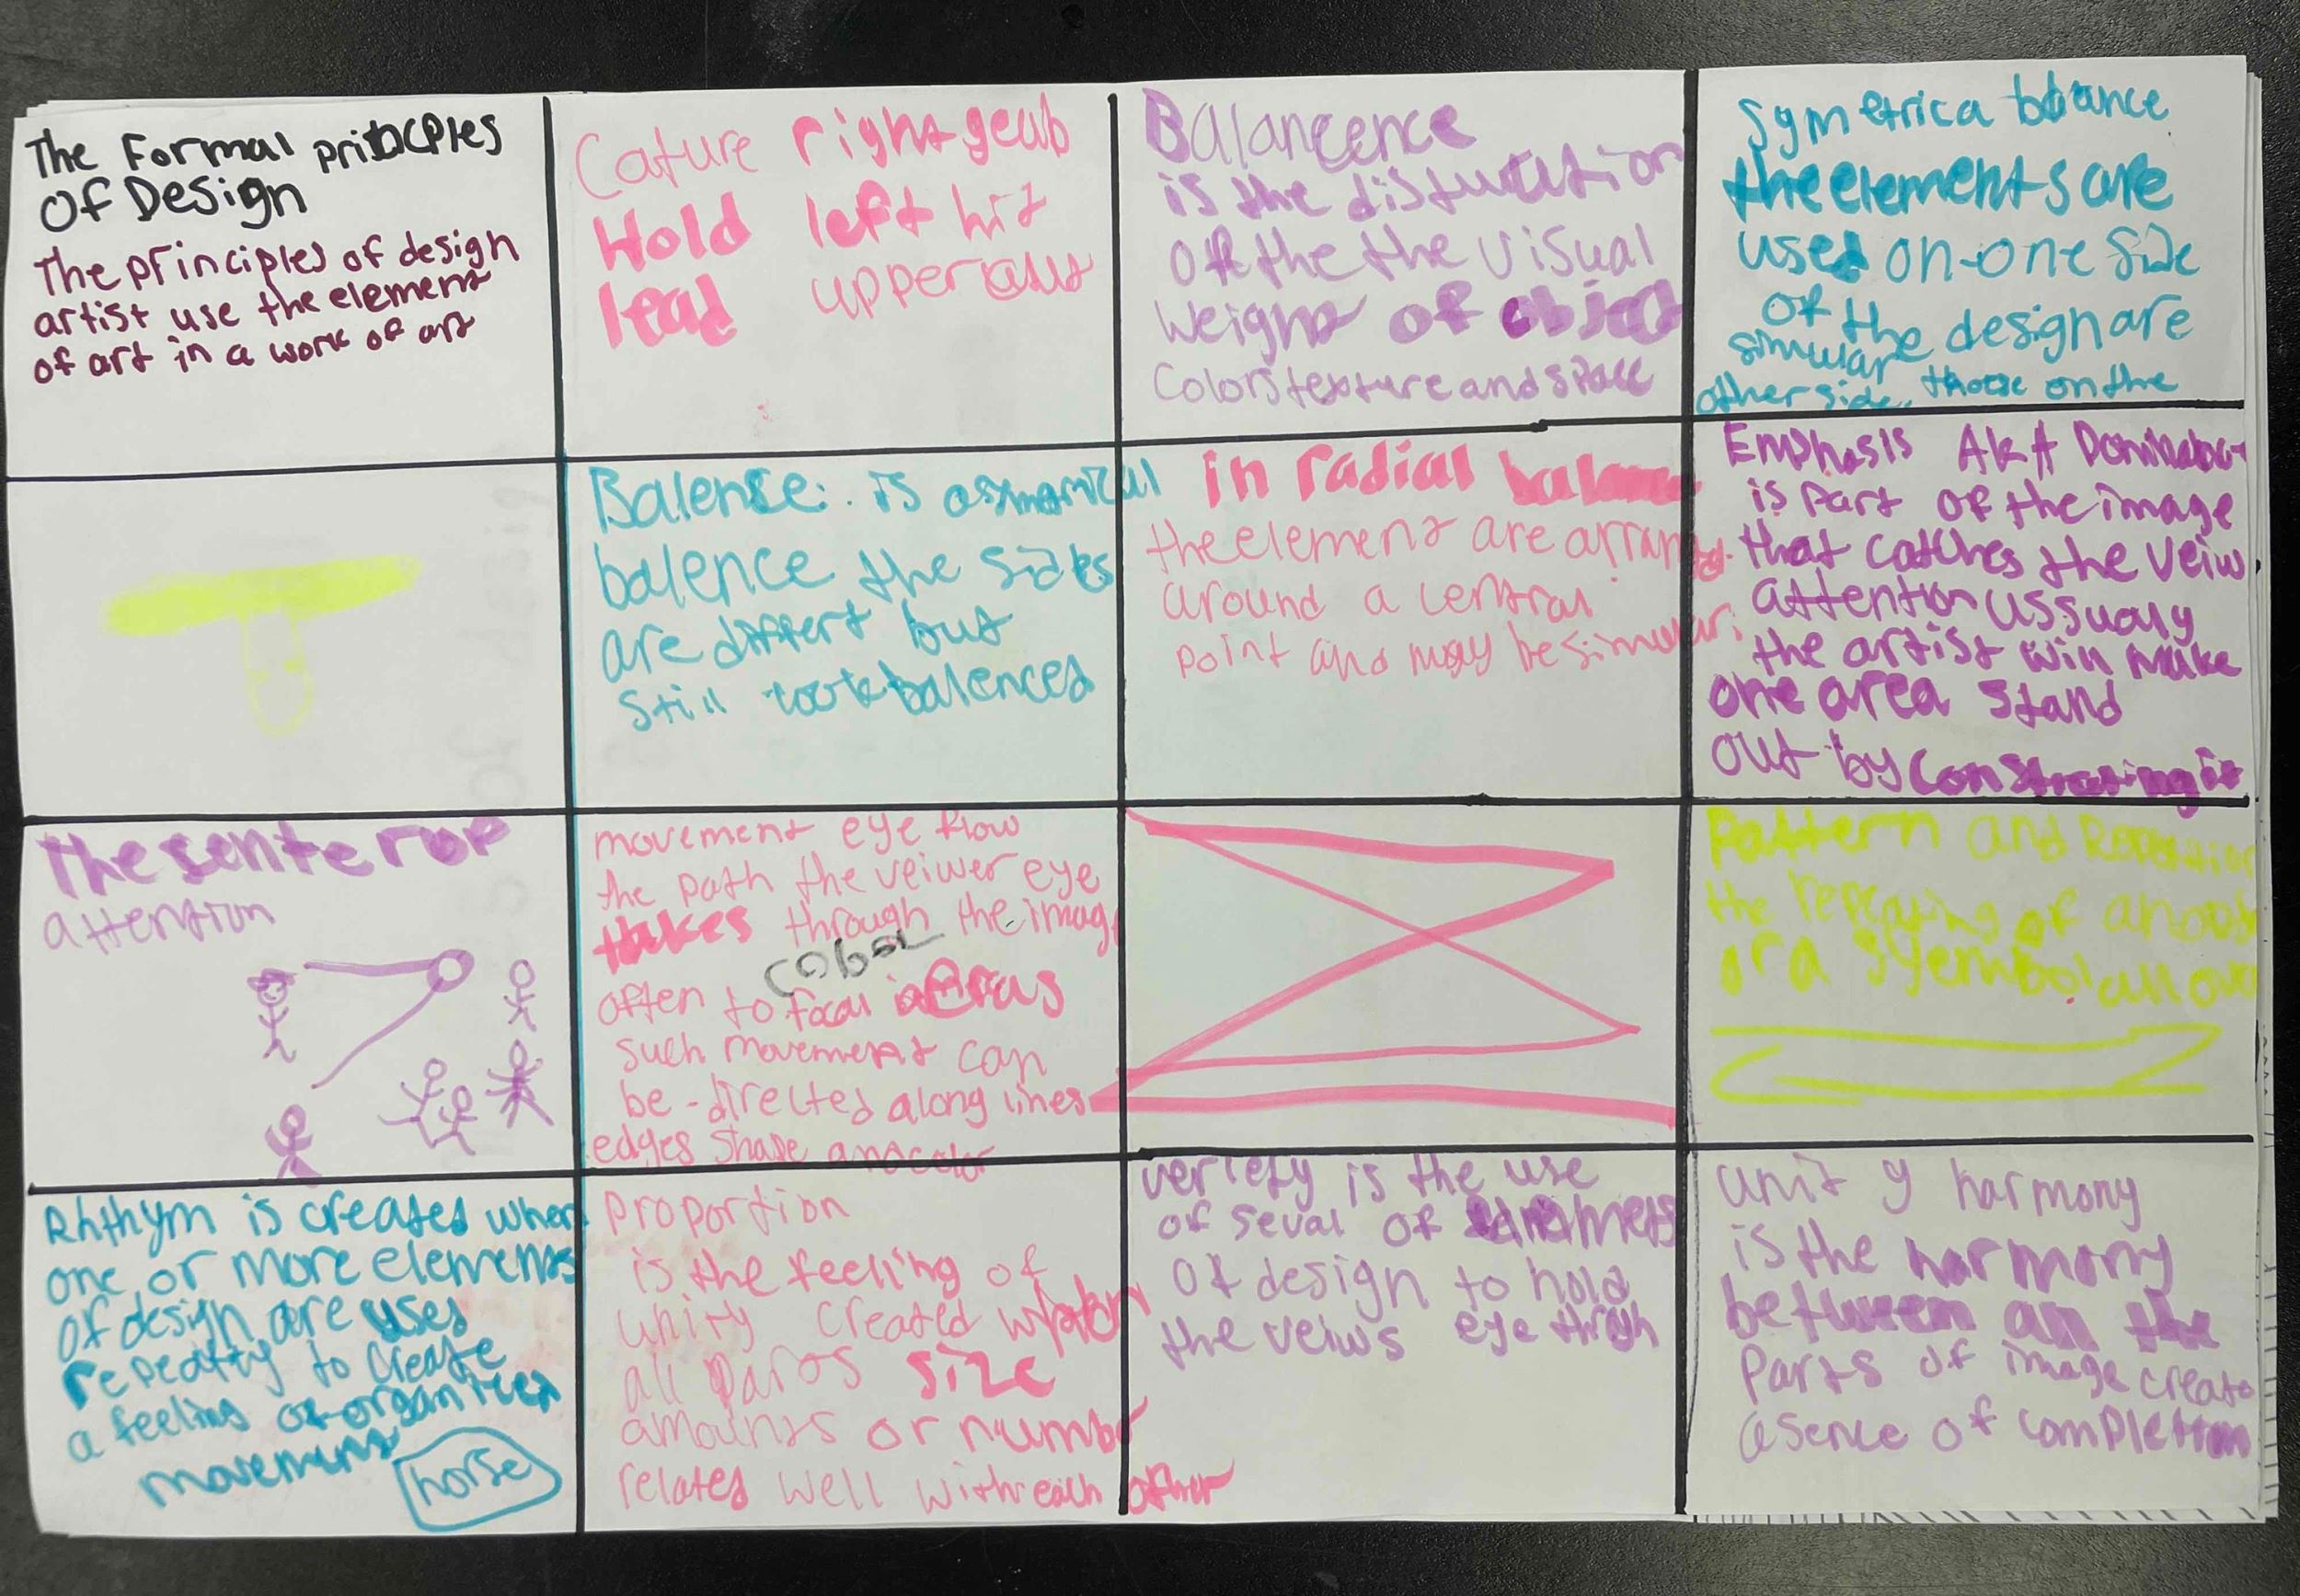 The Formal principles
Of Design
The principles of design
artist use the element
of art in a work of art
Cature right geub
Hold left hit
lead uppercut
Balanceence
is the
Off the the visual
Weight of object
Colors texture and space
Symetrica balance
the elements are
used on-one side
of the design are
simular those on the
other side
Balense: is
balence the sides
are differt but
still look balences
in radial balance
the element are arranged.
around a central
point and may be simular
Emphasis AKA
is part of the image
that catches the veiw
attention ussualy
the artist will make
one area stand
out by constrasing it
The senter op
attention
movement eye flow
the path the veiwer eye
takes through the imag
cobal
often to focal
such movement can
be-directed along lines
edges shape and color
Pattern and
the repeating of
or a Syembol all over
Rhthym is creates when
one or more elements
of design are uses
repeatty to create
a feeling of organized
movement
horse
Proportion
is the feeling of
unity created when
all parts size
amounts or number
relates well with each other
veriety is the use
of seval of
Of design to hold
the veiws eye thrgh
unit y harmony
is the harmony
between all the
Parts of image create
a sence of completion